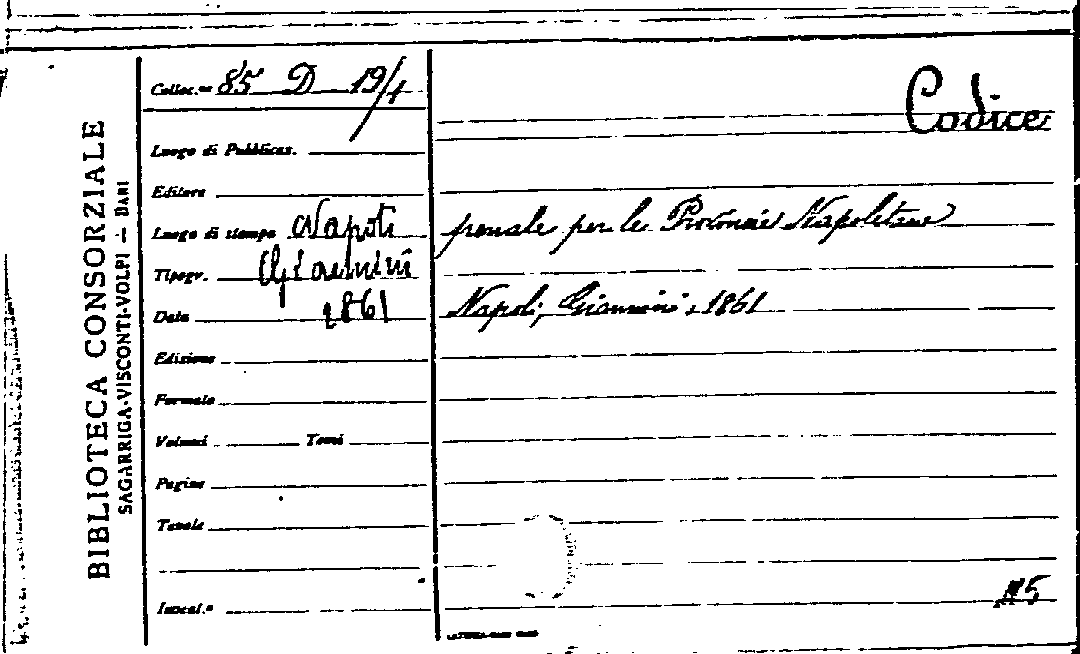 BIBLIOTECA CONSORZIALE
SAGARRIGA-VISCONTI-VOLPI — BARI
Colloc.ne 85 D 19/1
Luogo di Pubblicaz.
Editore
Luogo di stampa Napoli
Tipogr. Giannini
Data 1861
Edizione
Formato
Volumi Tomi
Pagine
Tavole
Inscal.e
Codice
penale per le Provincie Napoletane
Napoli, Giannini, 1861